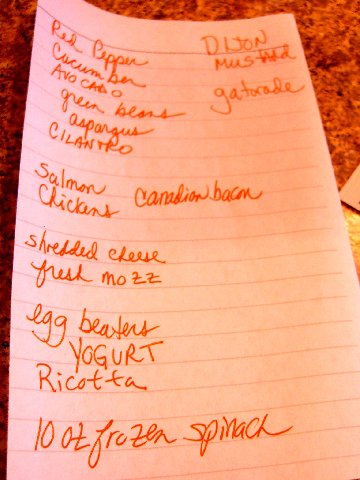 Red Pepper
Cucumber
AVOCADO
green beans
asparagus
CILANTRO
DIJON
MUSTARD
gatorade
Salmon
Chickens
Canadian bacon
shredded cheese
fresh mozz
egg beaters
YOGURT
Ricotta
10 oz frozen spinach